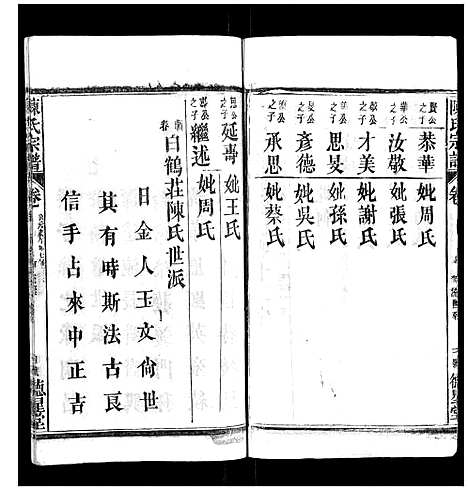 陳氏宗譜
賢公之子 恭華 妣周氏
華公之子 汝敬 妣張氏
敬公之子 才美 妣謝氏
美公之子 思旻 妣孫氏
旻公之子 彥德 妣吳氏
德公之子 承思 妣蔡氏
思公之子 延壽 妣王氏
壽公之子 繼述 妣周氏
白鶴莊陳氏世派
日金人玉文尙世
其有時斯法古良
信手占來中正吉
陳氏宗譜 卷
德星堂